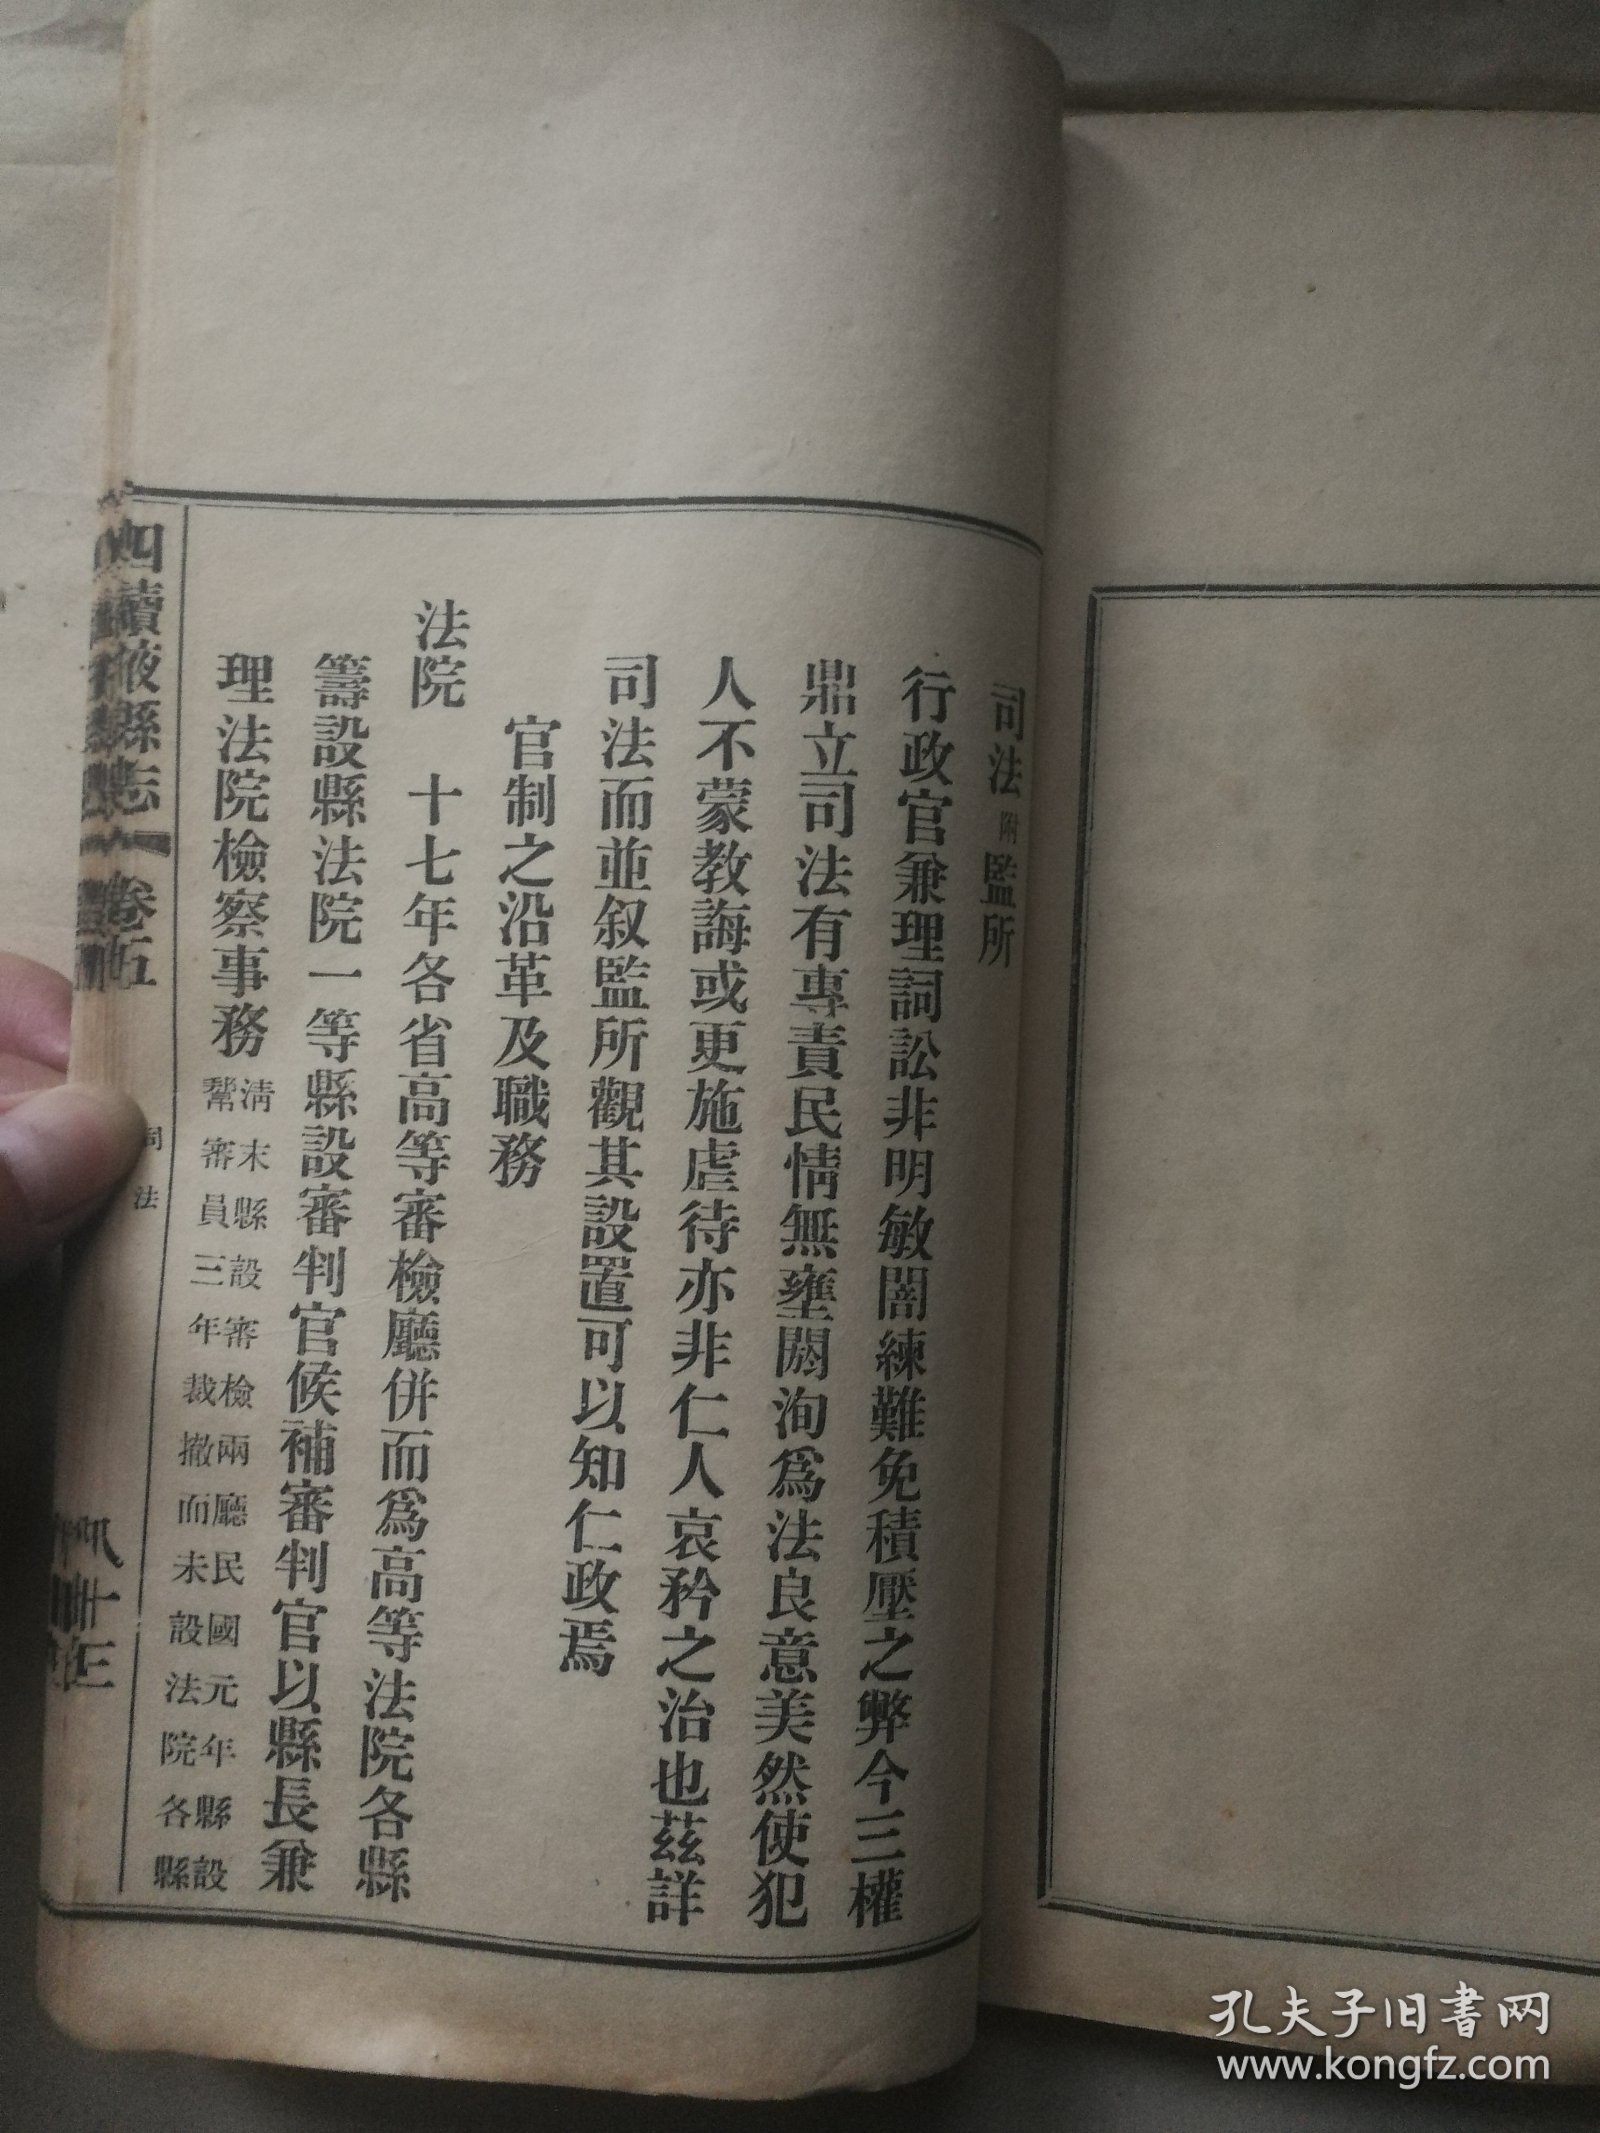 司法附監所
行政官兼理詞訟非明敏闇練難免積壓之弊今三權
鼎立司法有專責民情無壅閼洵爲法良意美然使犯
人不蒙教誨或更施虐待亦非仁人哀矜之治也茲詳
司法而並叙監所觀其設置可以知仁政焉
官制之沿革及職務
法院　十七年各省高等審檢廳併而爲高等法院各縣
籌設縣法院一等縣設審判官候補審判官以縣長兼
理法院檢察事務
清末縣設審檢兩廳民國元年縣設
幫審員三年裁撤而未設法院各縣
四續掖縣志
卷五
司法
孔夫子旧书网
www.kongfz.com